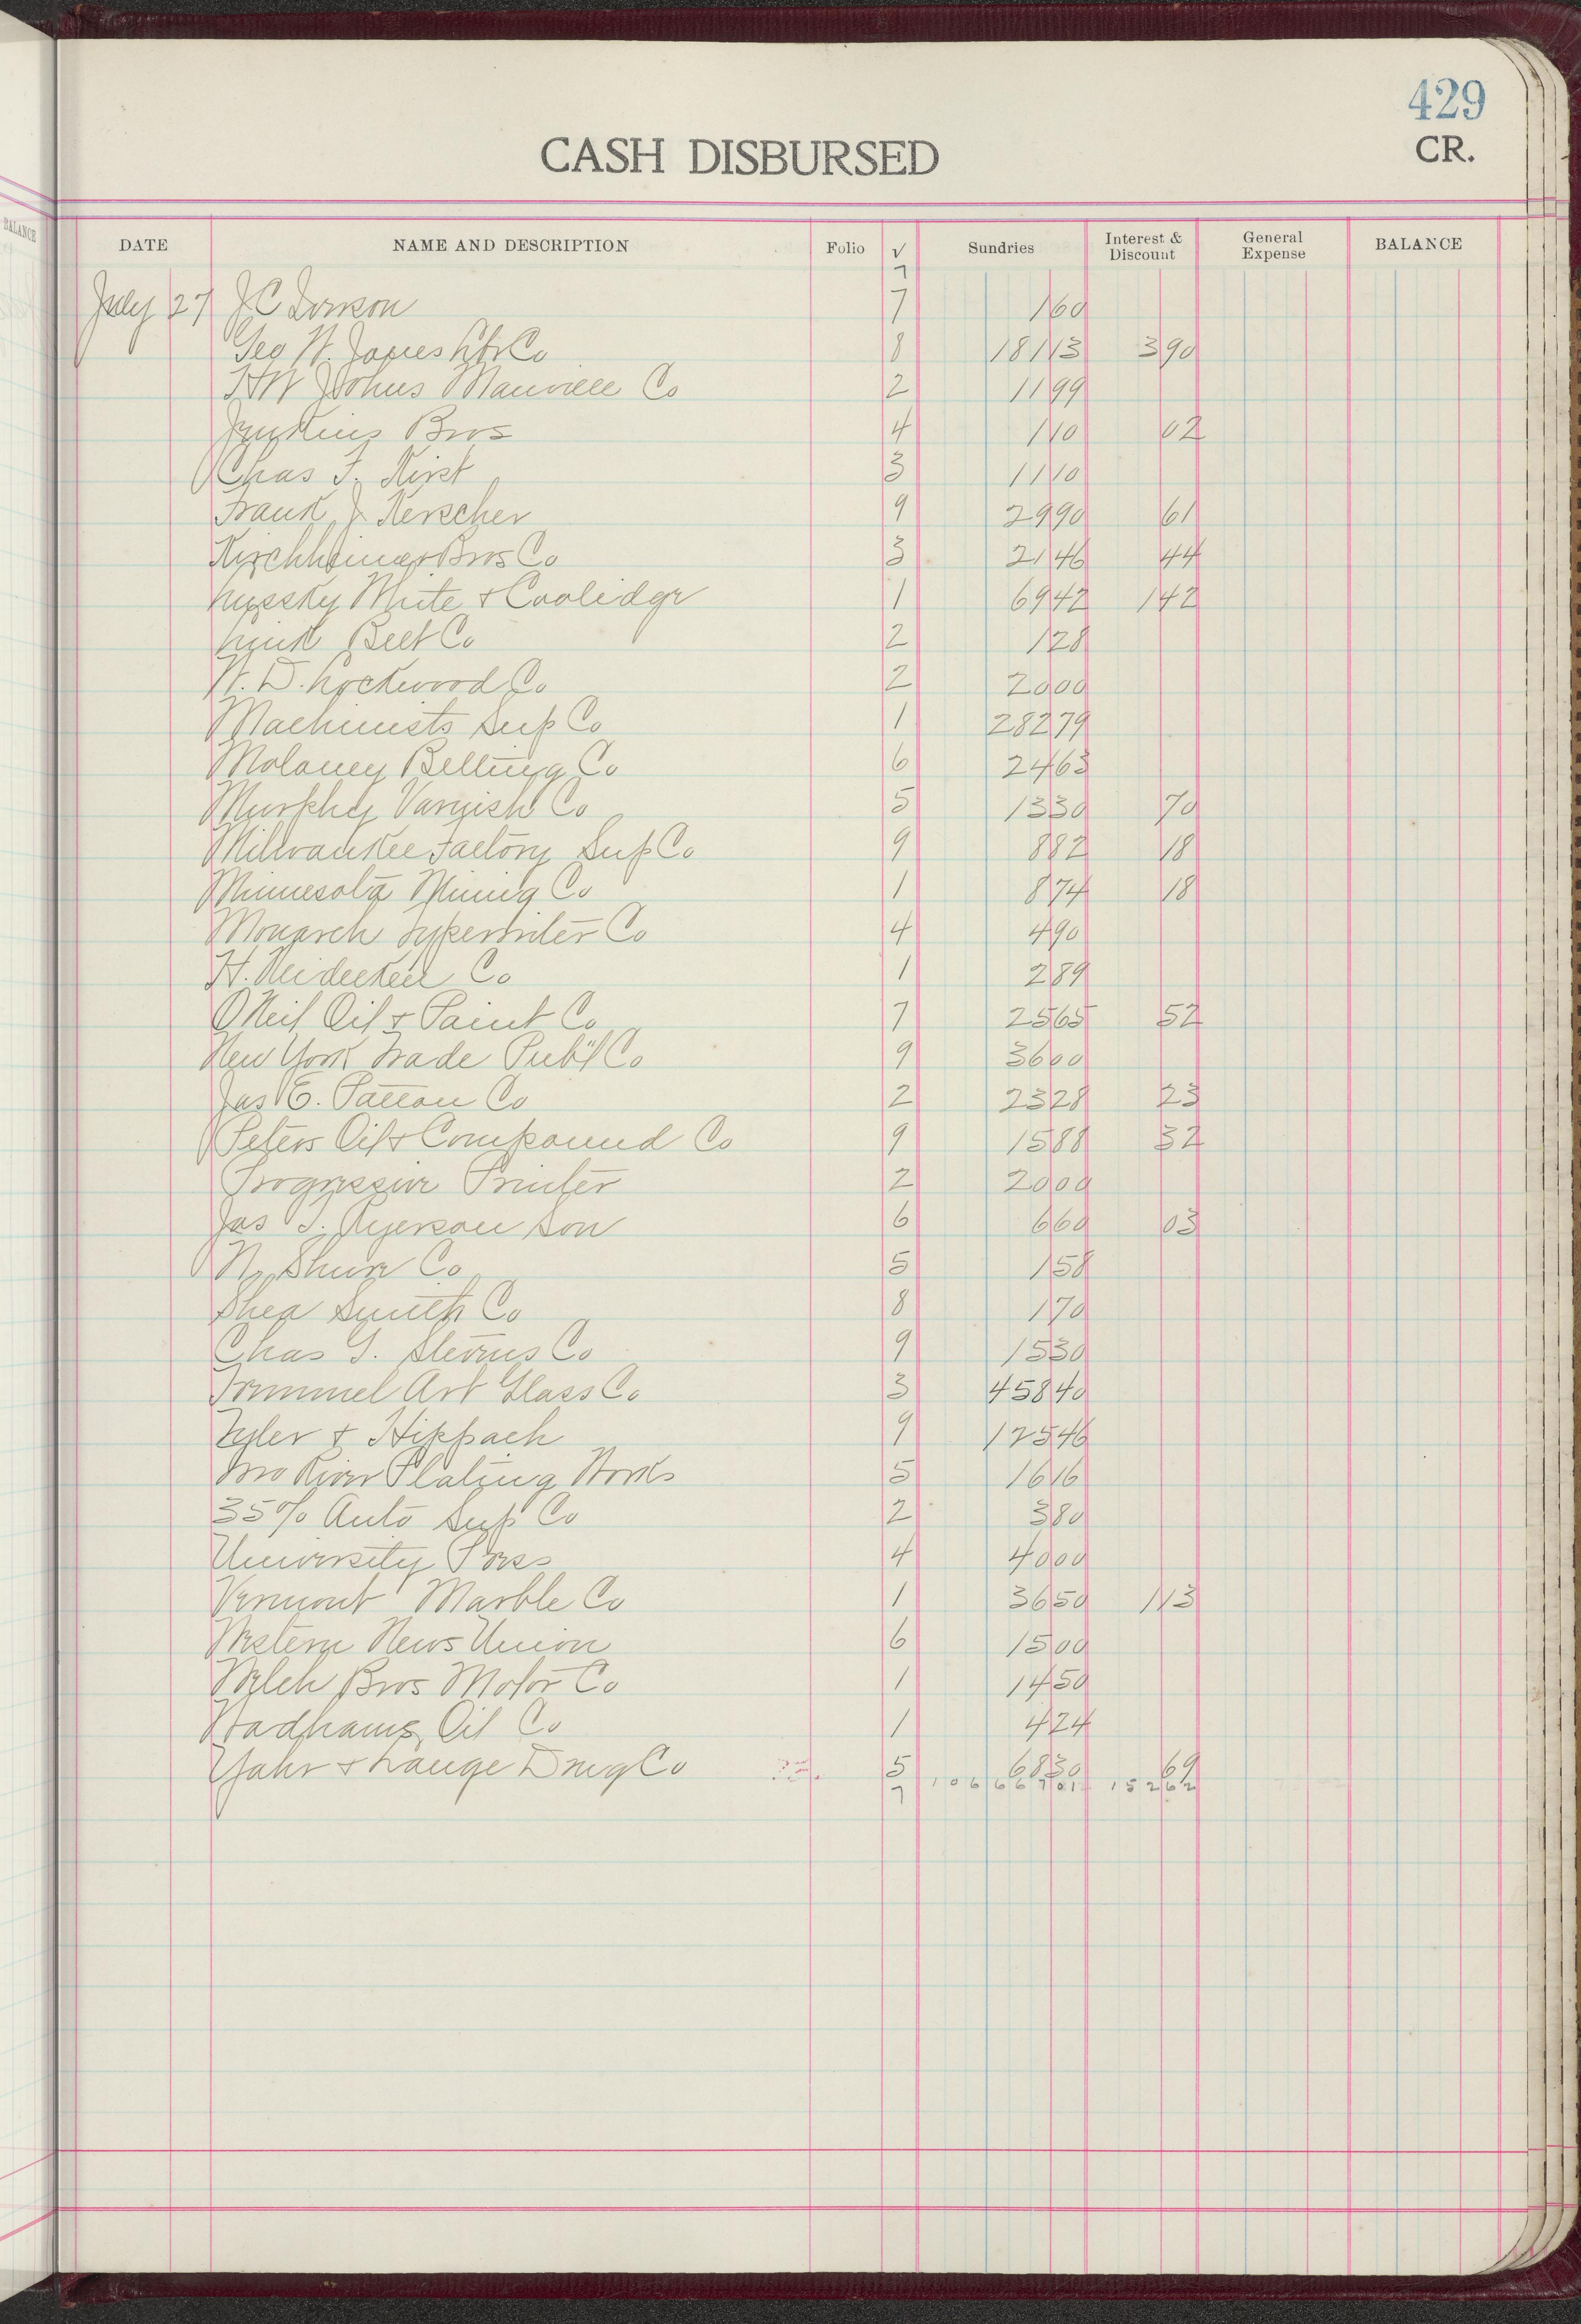 429
CASH DISBURSED CR.
BALANCE
DATE NAME AND DESCRIPTION Folio √ Sundries Interest & Discount General Expense BALANCE
7
July 27 J C Iverson 7 1 60
Geo W. Jones Lbr Co 8 181 13 3 90
H W Johns Manville Co 2 11 99
Jenkins Bros 4 1 10 02
Chas F. Kirst 3 11 10
Frank J Kerscher 9 29 90 61
Kirchheimer Bros Co 3 21 46 44
Lussky White & Coolidge 1 69 42 1 42
Link Belt Co 2 1 28
W. D. Lockwood Co 2 20 00
Machinists Sup Co 1 282 79
Molaney Belting Co 6 24 63
Murphy Varnish Co 5 13 30 70
Milwaukee Factory Sup Co 9 8 82 18
Minnesota Mining Co 1 8 74 18
Monarch Typewriter Co 4 4 90
H. Neidecken Co 1 2 89
O Neil Oil & Paint Co 7 25 65 52
New York Trade Pub'l Co 9 36 00
Jas E. Patton Co 2 23 28 23
Peters Oil & Compound Co 9 15 88 32
Progressive Printer 2 20 00
Jas T. Ryerson Son 6 6 60 03
N. Shure Co 5 1 58
Shea Smith Co 8 1 70
Chas G. Stevens Co 9 15 30
Trummel Art Glass Co 3 458 40
Tyler & Hippach 9 125 46
Two River Plating Works 5 16 16
35% Auto Sup Co 2 3 80
University Press 4 40 00
Vermont Marble Co 1 36 50 1 13
Western News Union 6 15 00
Welch Bros Motor Co 1 14 50
Wadhams Oil Co 1 4 24
Yahr & Lange Drug Co 5 68 30 69
7 106667 01 152 62